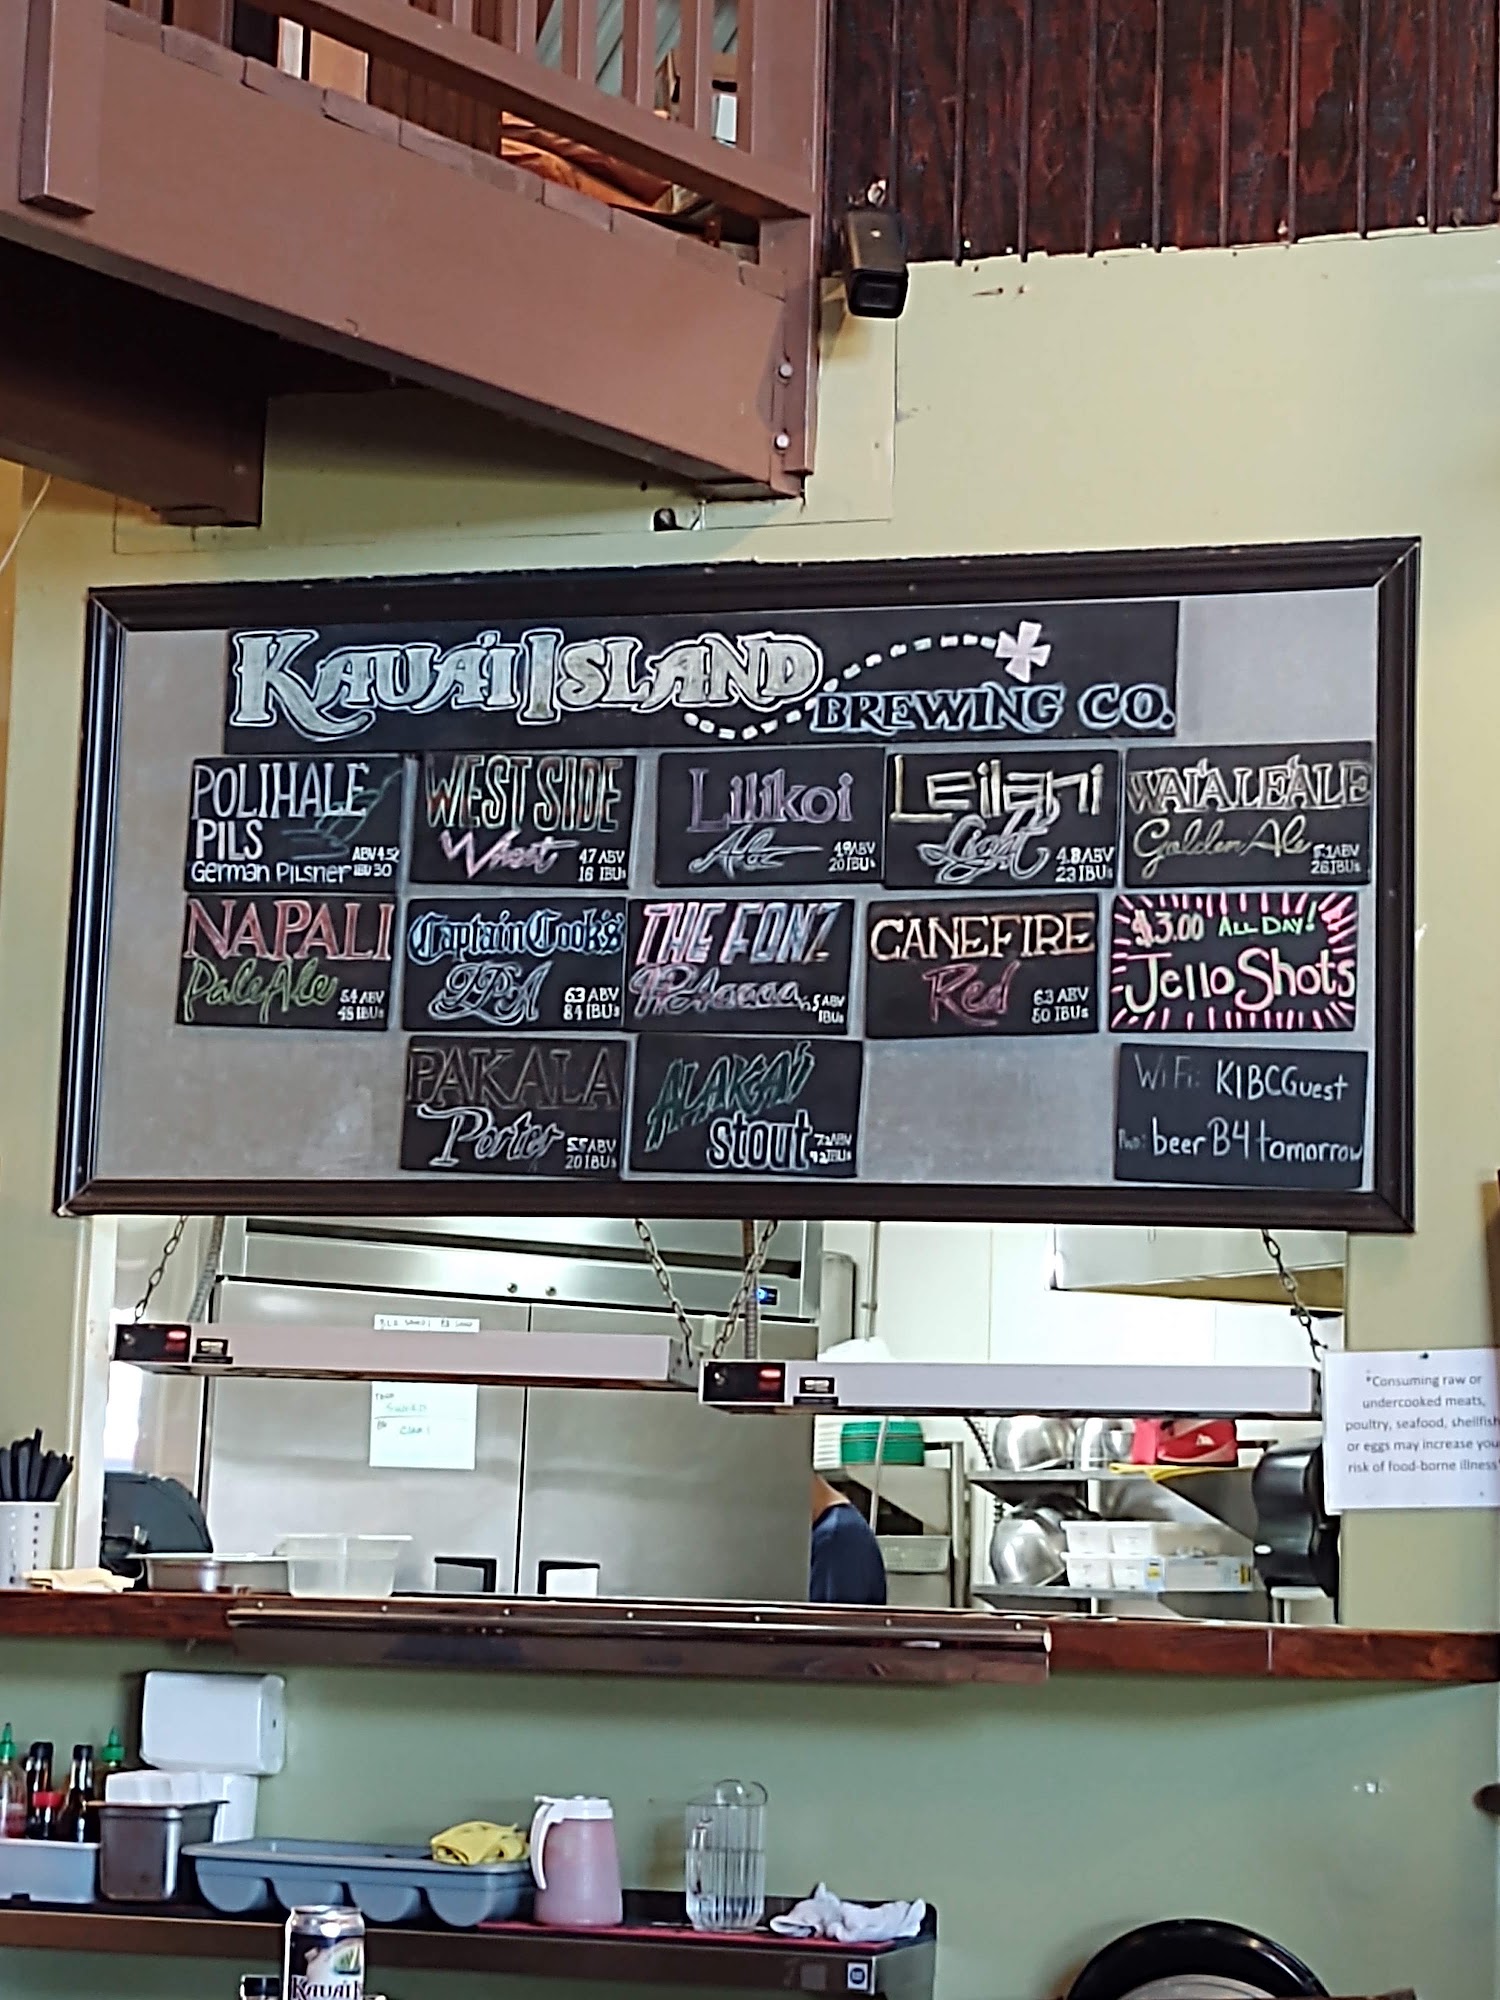 KAUA'I ISLAND
BREWING CO.
POLIHALE
PILS
German Pilsner
ABV 4.5
IBU 30
WEST SIDE
Wheat
4.7 ABV
16 IBUs
Lilikoi
Ale
4.9 ABV
20 IBUs
Leilani
Light
4.8 ABV
23 IBUs
WAI'ALE'ALE
Golden Ale
5.1 ABV
26 IBUs
NAPALI
Pale Ale
5.4 ABV
45 IBUs
Captain Cook's
IPA
6.3 ABV
84 IBUs
THE FONZ
IPAaaaa
.5 ABV
IBUs
CANEFIRE
Red
6.3 ABV
50 IBUs
$3.00 ALL DAY!
Jello Shots
PAKALA
Porter
5.5 ABV
20 IBUs
ALAKA'I
Stout
7.2 ABV
IBUs
WiFi: KIBCGuest
beerB4tomorrow
*Consuming raw or
undercooked meats,
poultry, seafood, shellfish
or eggs may increase you
risk of food-borne illness
KAUAI